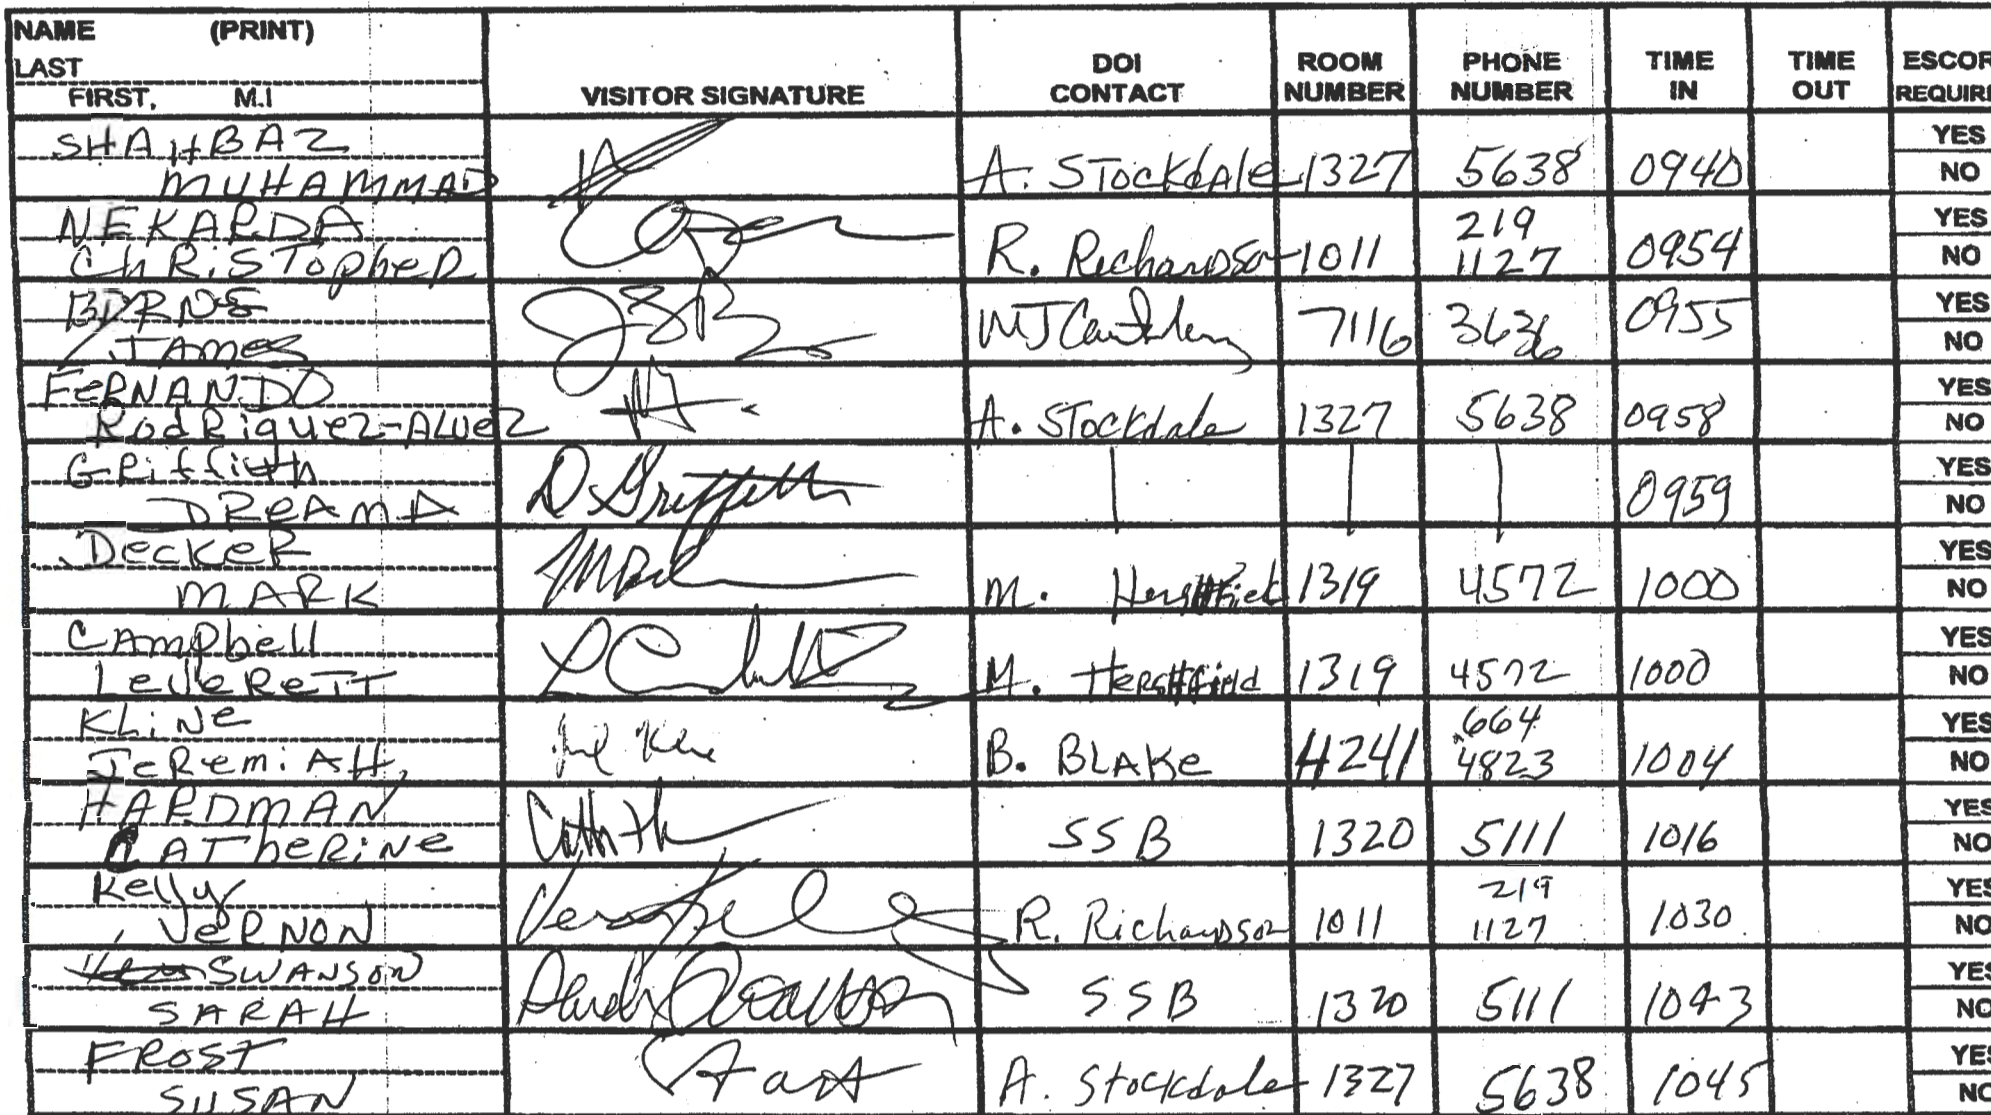 NAME (PRINT)
LAST
FIRST, M.I
VISITOR SIGNATURE
DOI CONTACT
ROOM NUMBER
PHONE NUMBER
TIME IN
TIME OUT
ESCOR
REQUIRE
SHAHBAZ
MUHAMMAD
A. STockdAle 1327 5638 0940
YES
NO
NEKARDA
ChRiSTopheR
R. Richardson 1011 219 1127 0954
YES
NO
JAmes
7116 3636 0955
YES
NO
FeRNANDO
RodRiquez-Alvez
A. STockdale 1327 5638 0958
YES
NO
GRiffith
DReAmA
D. Griffith
0959
YES
NO
DeckeR
mARK
M. 1319 4572 1000
YES
NO
CAmpbell
LeVeReTT
M. 1319 4572 1000
YES
NO
KLiNe
JeRemiAH,
B. BLAKe 4241 664 4823 1004
YES
NO
HARDMAN
CATheRiNe
SSB 1320 5111 1016
YES
NO
Kelly
VeRNON
R. Richardson 1011 219 1127 1030
YES
NO
SWANSON
SARAH
SSB 1320 5111 1043
YES
NO
FROST
SUSAN
A. Stockdale 1327 5638 1045
YES
NO